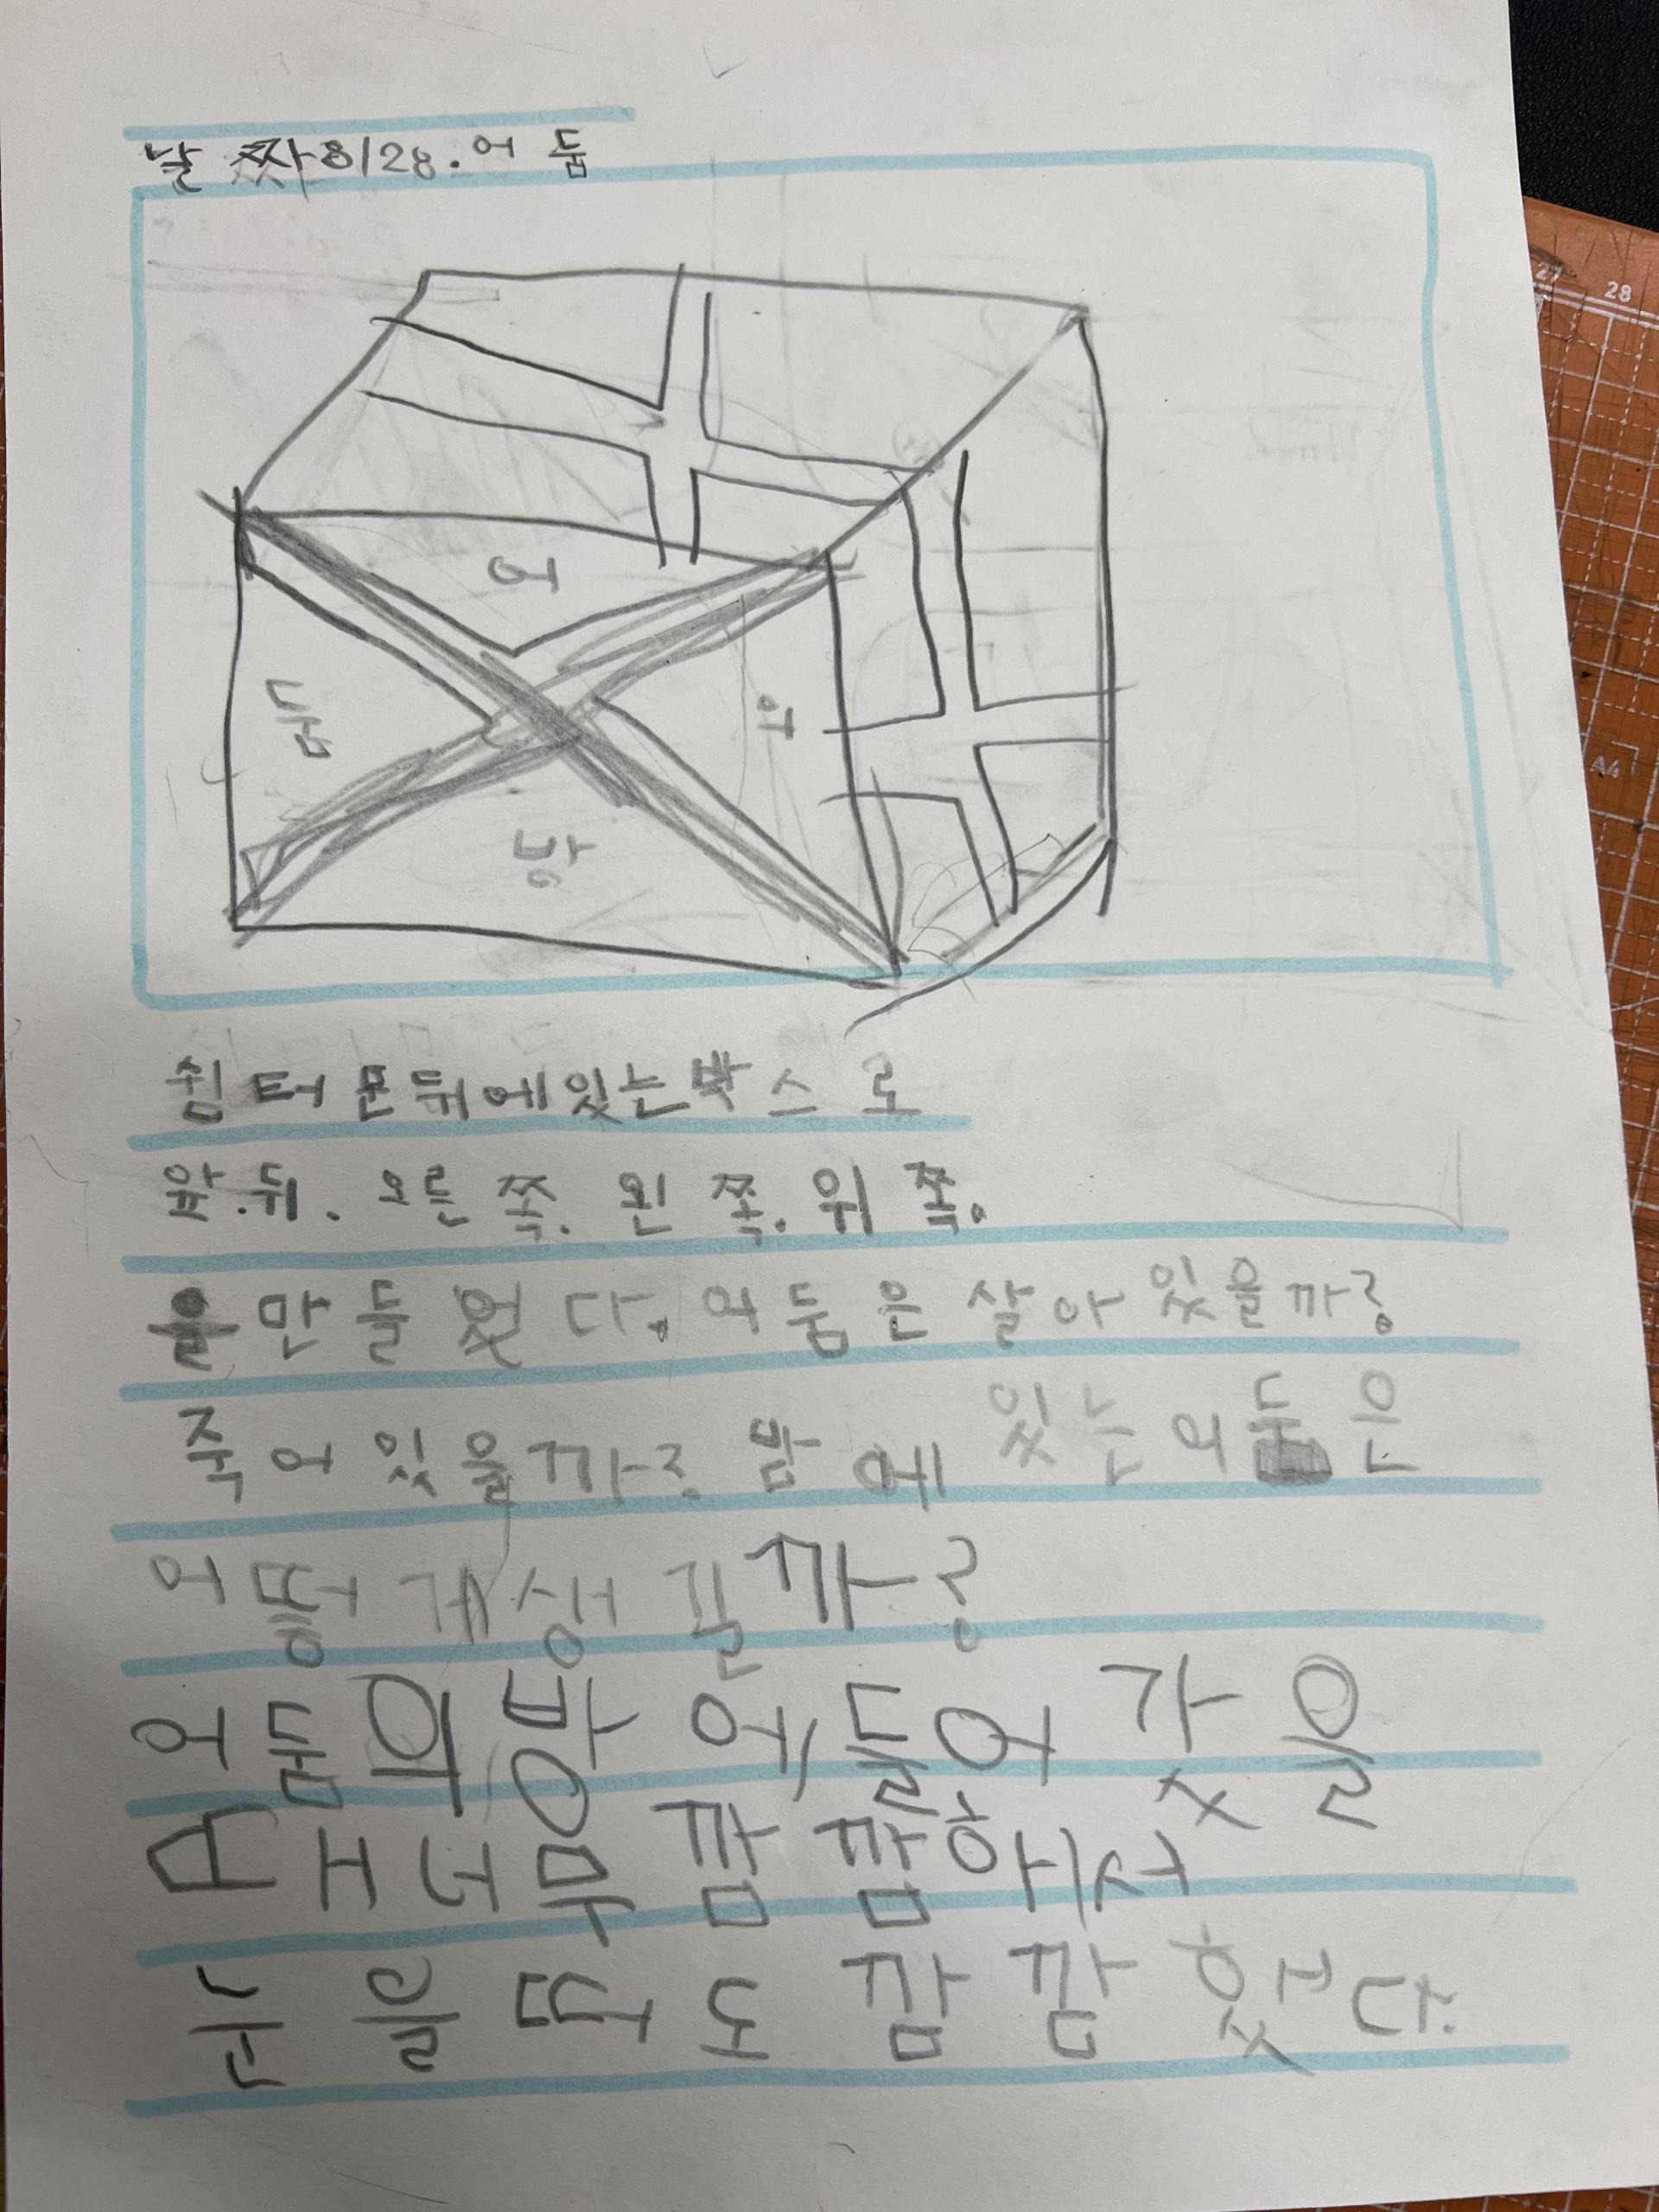 날짜 8/28. 어둠
어
둠
의
방
쉼터 문뒤에있는박스로
앞.뒤. 오른쪽. 왼쪽. 위쪽.
을 만들었다. 어둠은 살아있을까?
죽어있을까? 밤에 있는 어둠은
어떻게생길까?
어둠의방에들어갓을
때너무깜깜해서
눈을떠도깜깜했다.